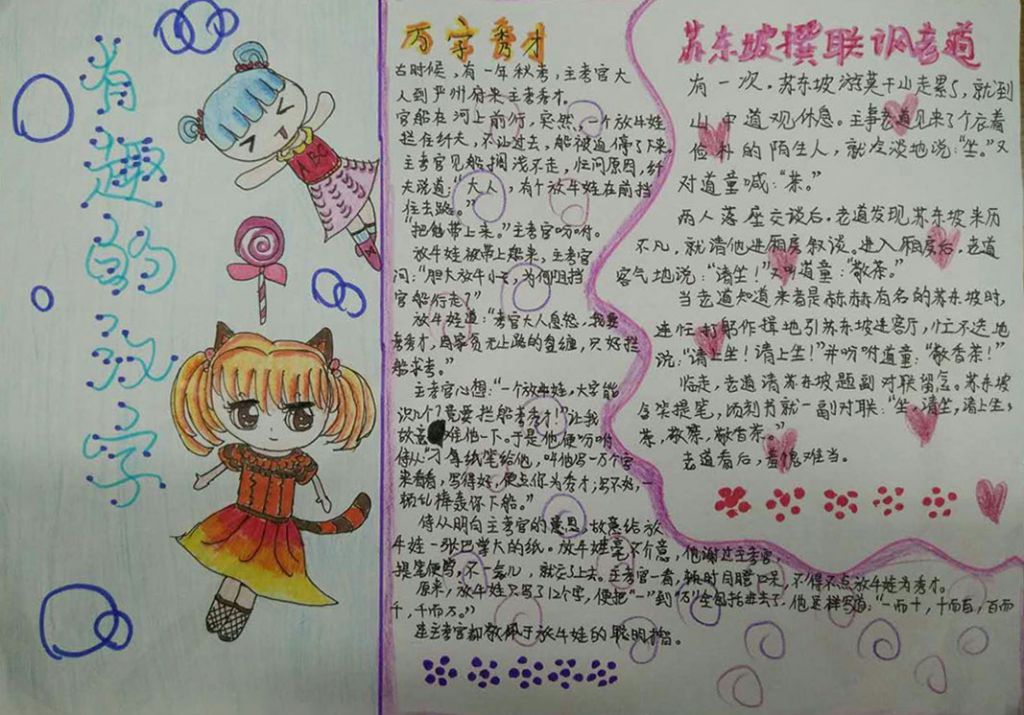 有趣的汉字
万字秀才
古时候,有一年秋考,主考官大
人到严州府来主考秀才。
官船在河上前行,突然,一个放牛娃
拦住纤夫,不让过去,船被迫停了下来。
主考官见船搁浅不走,忙问原因,纤
夫说道:“大人,有个放牛娃在前挡
住去路。”
“把他带上来。”主考官吩咐。
放牛娃被带上船来,主考官
问:“胆大放牛小子,为何阻挡
官船行走?”
放牛娃道:“考官大人息怒,我要
考秀才,因家贫无上路的盘缠,只好拦
船求考。”
主考官心想:“一个放牛娃,大字能
识几个?竟要拦船考秀才!”让我
故意难他一下。于是他便吩咐
侍从“拿纸笔给他,叫他写一万个字
来看看,写得好,便点你为秀才;写不好,一
顿乱棒轰你下船。”
侍从明白主考官的意思,故意给放
牛娃一张巴掌大的纸。放牛娃毫不介意,他谢过主考官,
提笔便写,不一会儿,就交了上去。主考官一看,顿时目瞪口呆,不得不点放牛娃为秀才。
原来,放牛娃只写了12个字,便把“一”到“万”全包括进去了。他是样写道:“一而十,十而百,百而
千,千而万。”
连主考官都敬佩于放牛娃的聪明才智。
苏东坡撰联讽老道
有一次,苏东坡游莫干山走累了,就到
山中道观休息。主事老道见来了个衣着
俭朴的陌生人,就冷淡地说:“坐。”又
对道童喊:“茶。”
两人落座交谈后,老道发现苏东坡来历
不凡,就请他进厢房叙谈。进入厢房后,老道
客气地说:“请坐!”又叫道童:“敬茶。”
当老道知道来者是赫赫有名的苏东坡时,
连忙打躬作揖地引苏东坡进客厅,忙不迭地
说:“请上坐!请上坐!”并吩咐道童:“敬香茶!”
临走,老道请苏东坡题副对联留念。苏东坡
含笑提笔,顷刻书就一副对联:“坐,请坐,请上坐;
茶,敬茶,敬香茶。”
老道看后,羞愧难当。